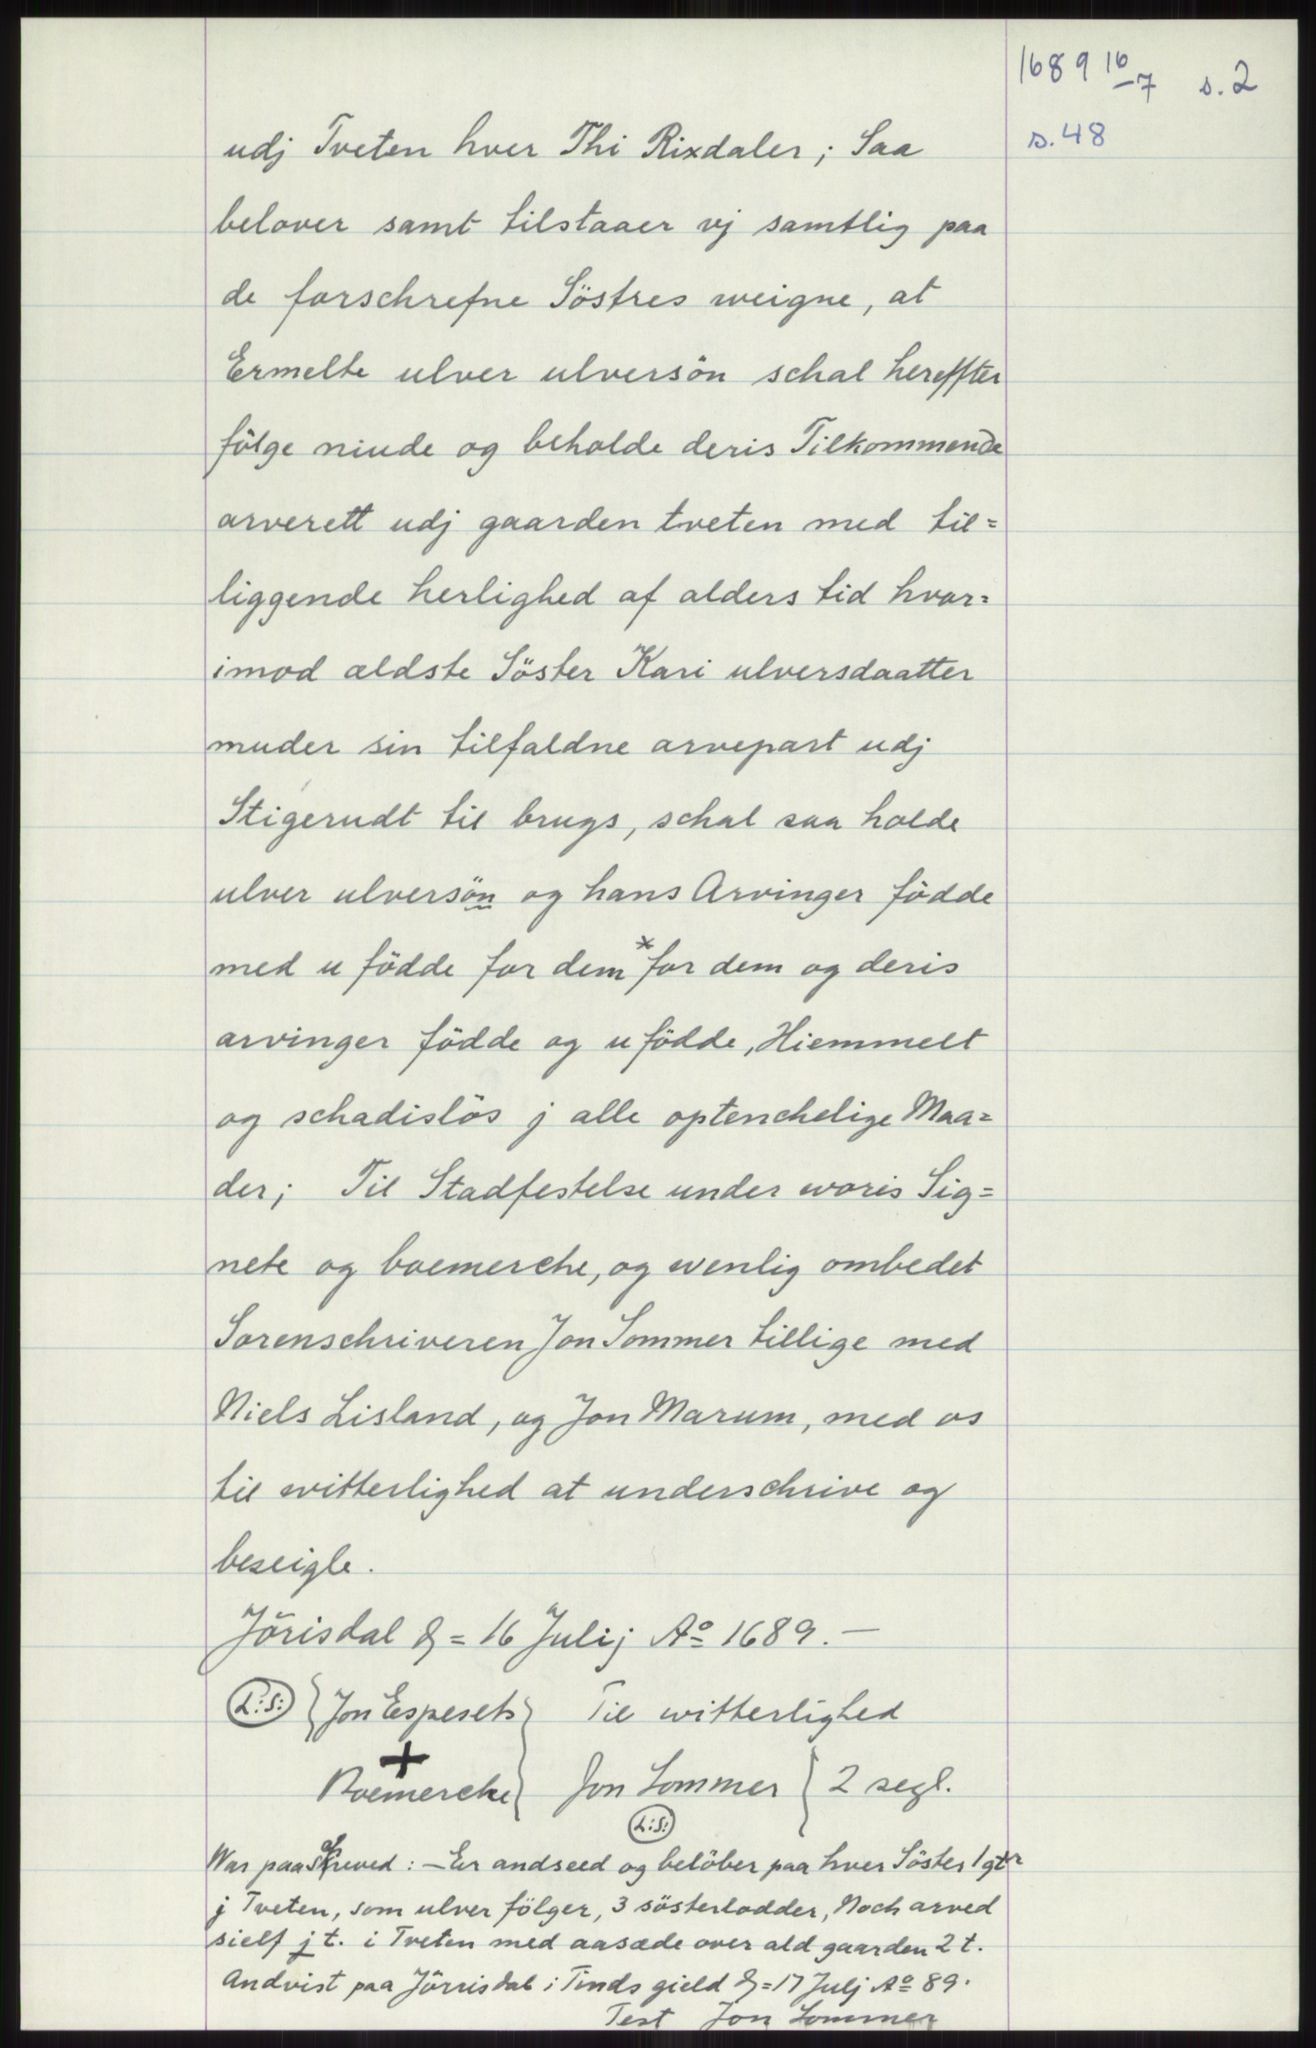 1689 16/7 s. 2
s. 48
udj Tveten hver Thi Rixdaler; Saa
belover samt tilstaaer vj samtlig paa
de forschrefne Söstres weigne, at
Ermelte ulver ulversön schal hereffter
fölge niude og beholde deris Tilkommende
arverett udj gaarden tveten med til=
liggende herlighed af alders tid hvor=
imod ældste Söster Kari ulversdaatter
muder sin tilfaldne arvepart udj
Stigerudt til brugs, schal saa holde
ulver ulversön og hans Arvinger födde
med u födde for dem * for dem og deris
arvinger födde og u födde, Hiemmelt
og schadislös j alle optenchelige Maa=
der; Til Stadfestelse under woris Sig=
nete og boemerche, og wenlig ombedet
Sorenschriveren Jon Sommer tillige med
Niels Lisland, og Jon Marum, med os
til witterlighed at underschrive og
beseigle.
Jörisdal d = 16 Julij Aº 1689. —
L:S: Jon Espesets Til witterlighed
+
Boemerche Jon Sommer 2 segl.
L:S:
War paaskreved: — Er andseed og belöber paa hver Söster 1 gtr
j Tveten, som ulver fölger, 3 sösterlodder, Noch arved
sielf j t. i Tveten med aasæde over ald gaarden 2 t.
Andvist paa Jörrisdal i Tinds gield d = 17 Julj Aº 89.
Test Jon Sommer